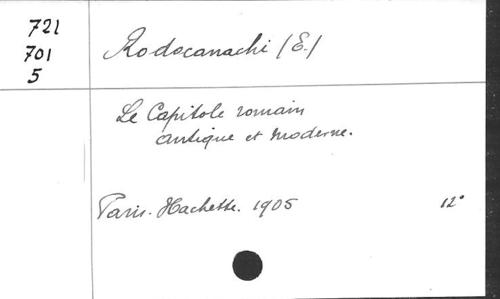 721
701
5
Rodocanachi (E.)
Le Capitole romain
antique et moderne.
Paris. Hachette. 1905 12°